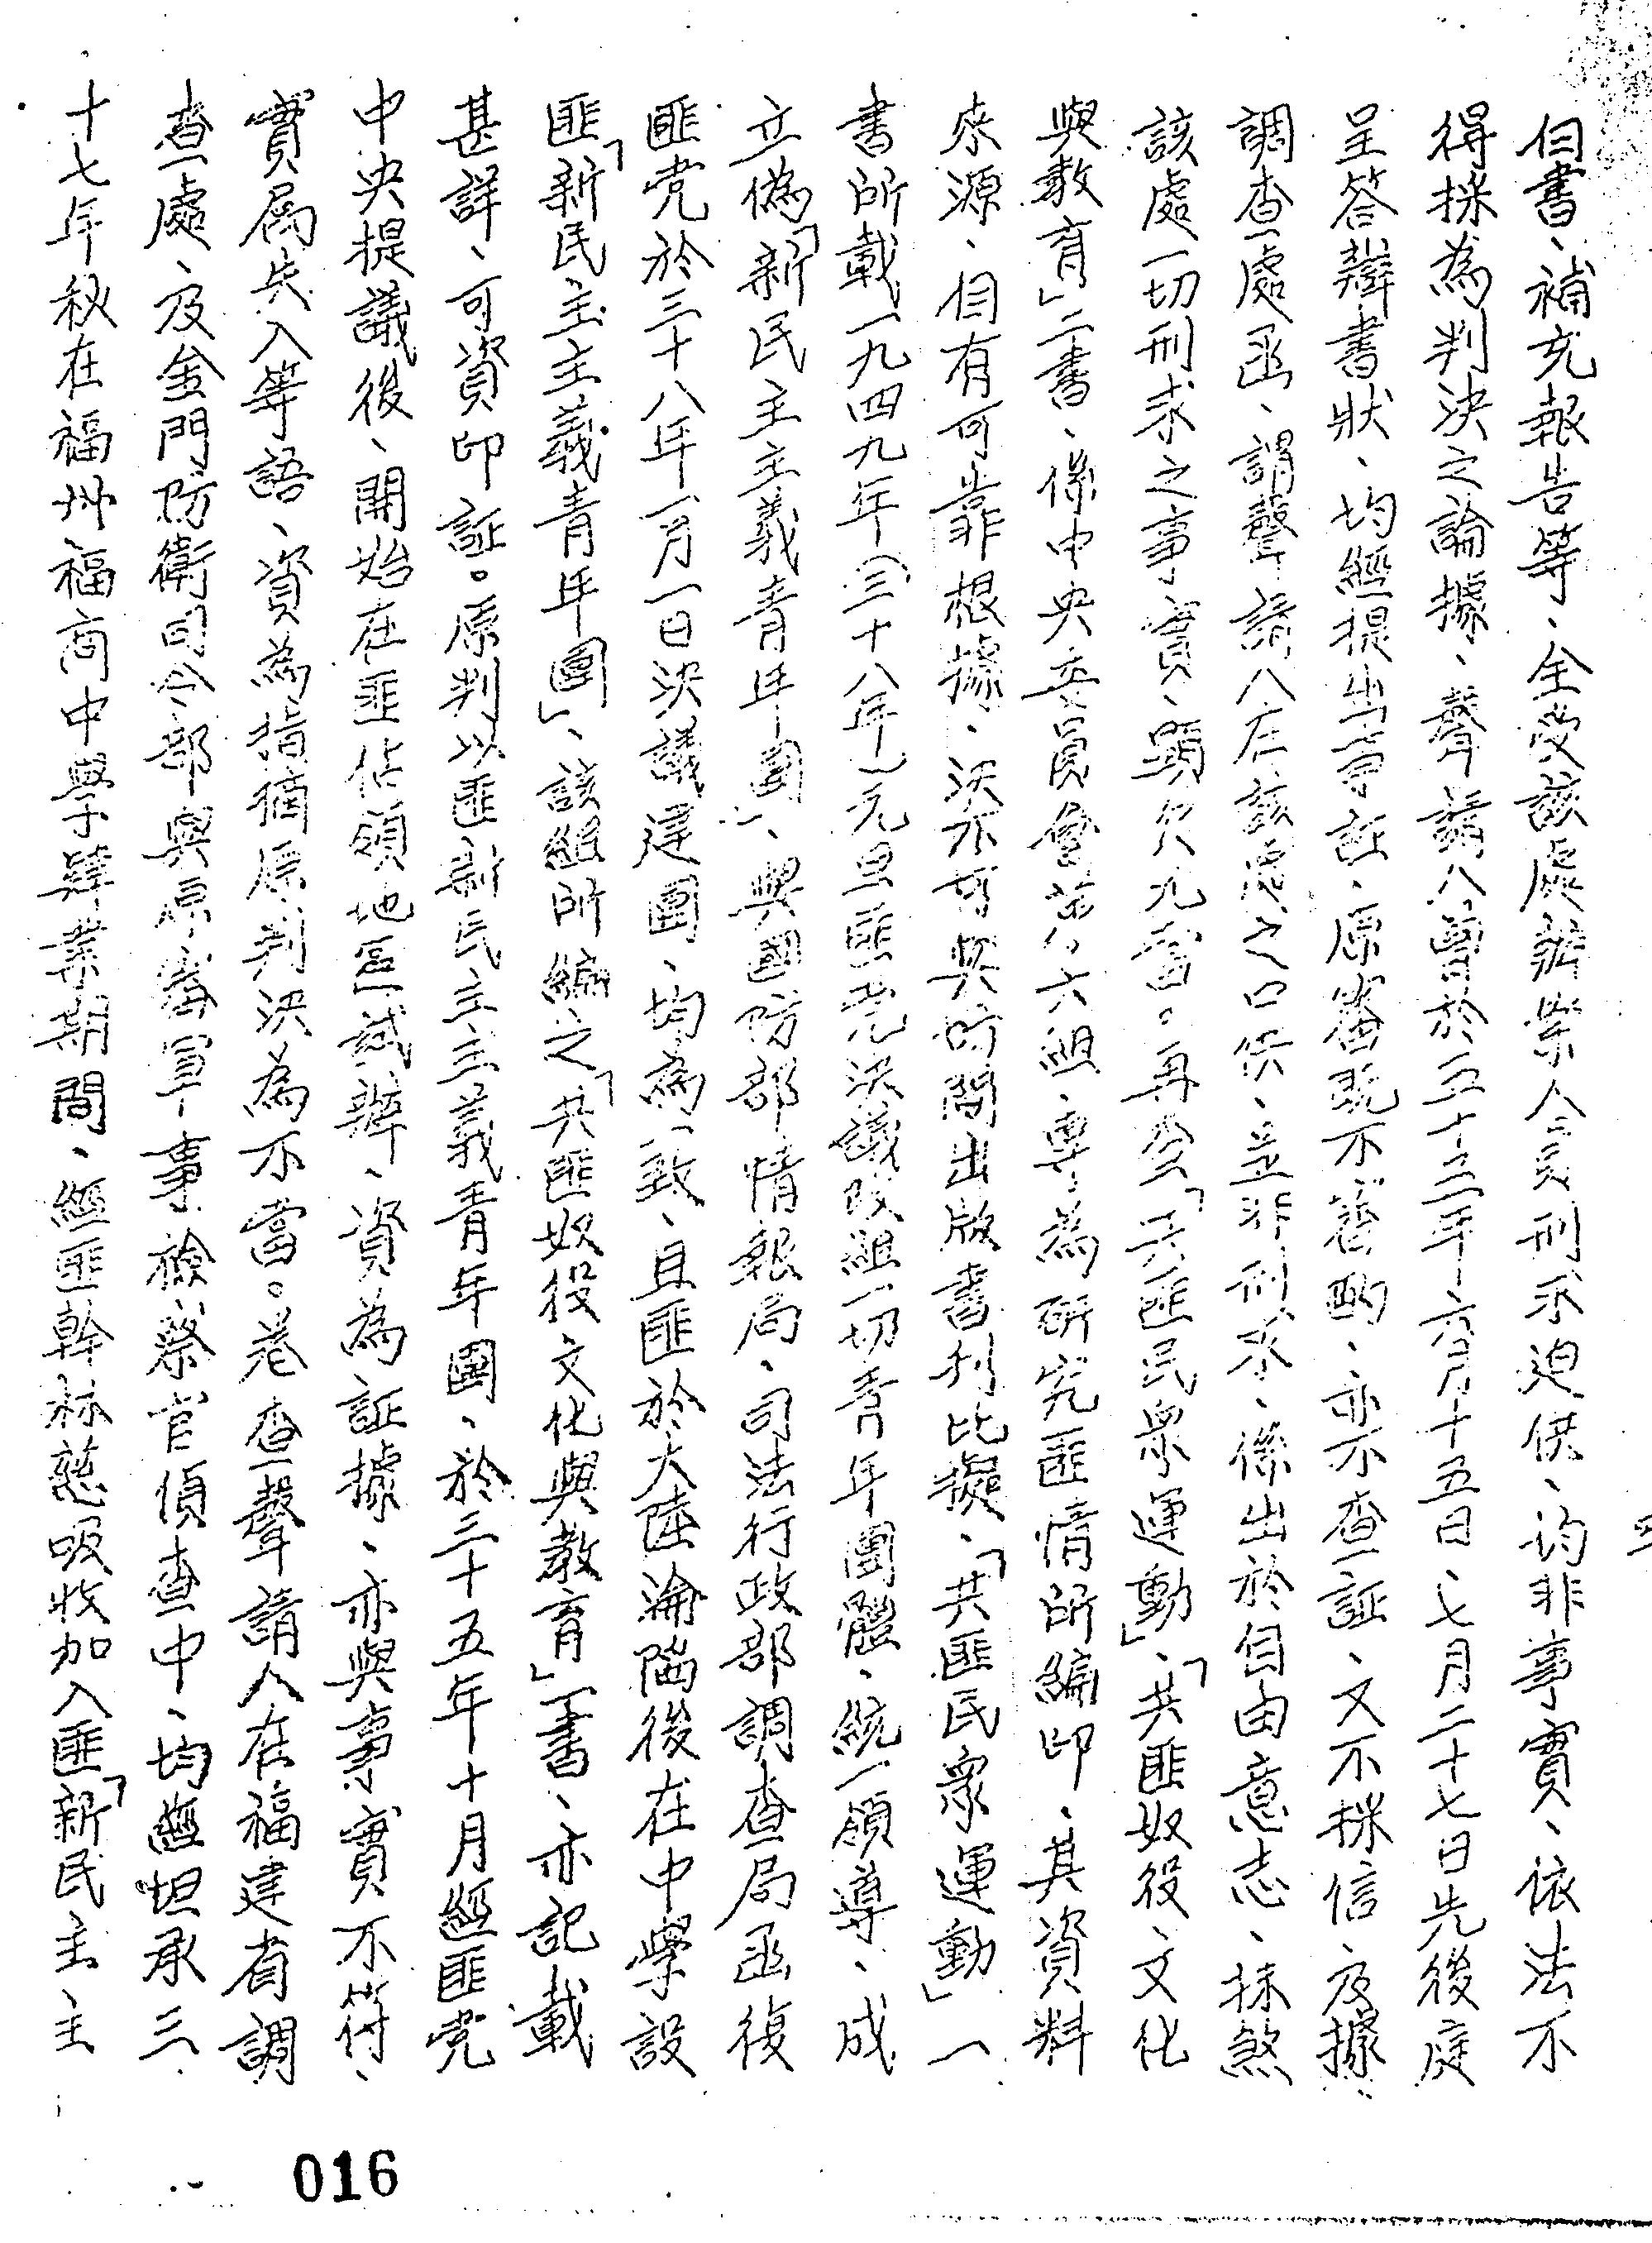 自書、補充報告等、全受該處辦案人員刑求迫供、均非事實、依法不
得採為判決之論據、聲請人曾於五十三年六月十五日、七月二十七日先後庭
呈答辯書狀、均經提出事証、原審既不審酌、亦不查証、又不採信、及據
調查處函、謂聲請人在該處之口供、並非刑求、係出於自由意志、抹煞
該處一切刑求之事實、顯欠允當。再查「共匪民眾運動」、「共匪奴役、文化
與教育」二書、係中央委員會第六組、專為研究匪情所編印、其資料
來源、自有可靠根據、決不可與坊間出版書刊比擬、「共匪民眾運動」一
書所載一九四九年（三十八年）元旦匪党決議改組一切青年團體、統一領導、成
立偽「新民主主義青年團」、與國防部情報局、司法行政部調查局函復
匪党於三十八年一月一日決議建團、均為一致、且匪於大陸淪陷後在中學設
匪「新民主主義青年團」、該組所編之「共匪奴役文化與教育」一書、亦記載
甚詳、可資印証。原判以匪新民主主義青年團、於三十五年十月經匪党
中央提議後、開始在匪佔領地區試辦、資為証據、亦與事實不符、
實屬失入等語、資為指摘原判決為不當。卷查聲請人在福建省調
查處、及金門防衛司令部與原審軍事檢察官偵查中、均經坦承三
十七年秋在福州福商中學肄業期間、經匪幹林慈吸收加入匪「新民主主
016